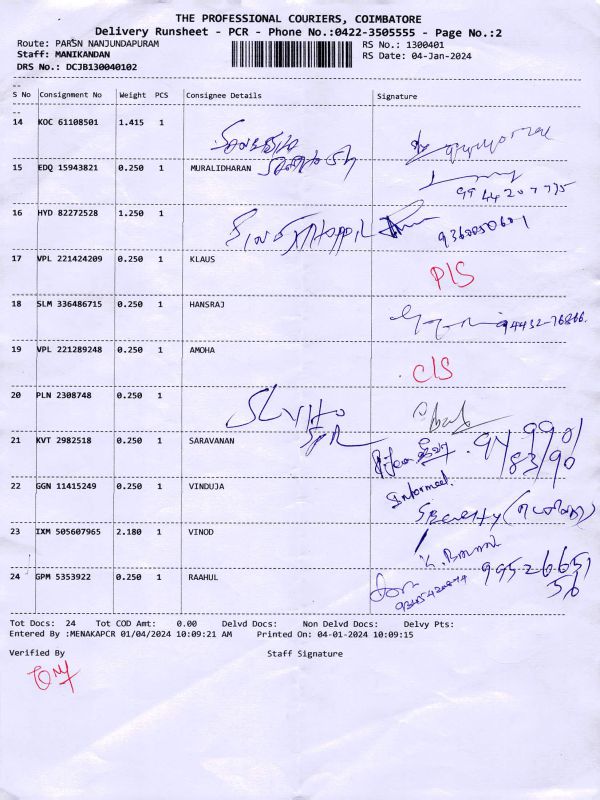 THE PROFESSIONAL COURIERS, COIMBATORE
Delivery Runsheet - PCR - Phone No.:0422-3505555 - Page No.:2
Route: PARSN NANJUNDAPURAM RS No.: 1300401
Staff: MANIKANDAN RS Date: 04-Jan-2024
DRS No.: DCJB130040102
S No Consignment No Weight PCS Consignee Details Signature
14 KOC 61108501 1.415 1
15 EDQ 15943821 0.250 1 MURALIDHARAN
9944207775
16 HYD 82272528 1.250 1
17 VPL 221424209 0.250 1 KLAUS P/S
18 SLM 336486715 0.250 1 HANSRAJ
19 VPL 221289248 0.250 1 AMOHA C/S
20 PLN 2308748 0.250 1
21 KVT 2982518 0.250 1 SARAVANAN
Informed.
22 GGN 11415249 0.250 1 VINDUJA
23 IXM 505607965 2.180 1 VINOD
24 GPM 5353922 0.250 1 RAAHUL
Tot Docs: 24 Tot COD Amt: 0.00 Delvd Docs: Non Delvd Docs: Delvy Pts:
Entered By :MENAKAPCR 01/04/2024 10:09:21 AM Printed On: 04-01-2024 10:09:15
Verified By Staff Signature